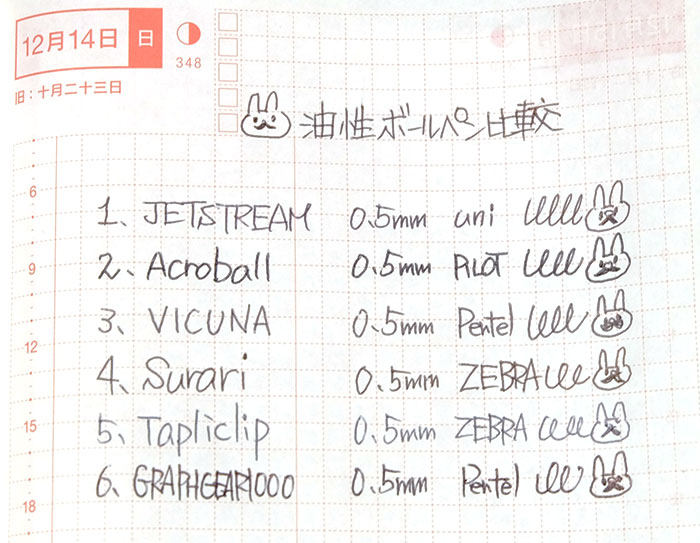 12月14日 日
348
旧:十月二十三日
油性ボールペン比較
6
1、JETSTREAM 0.5mm uni
9
2、Acroball 0.5mm PILOT
3、VICUNA 0.5mm Pentel
12
4、Surari 0.5mm ZEBRA
15
5、Tapliclip 0.5mm ZEBRA
6、GRAPHGEAR1000 0.5mm Pentel
18